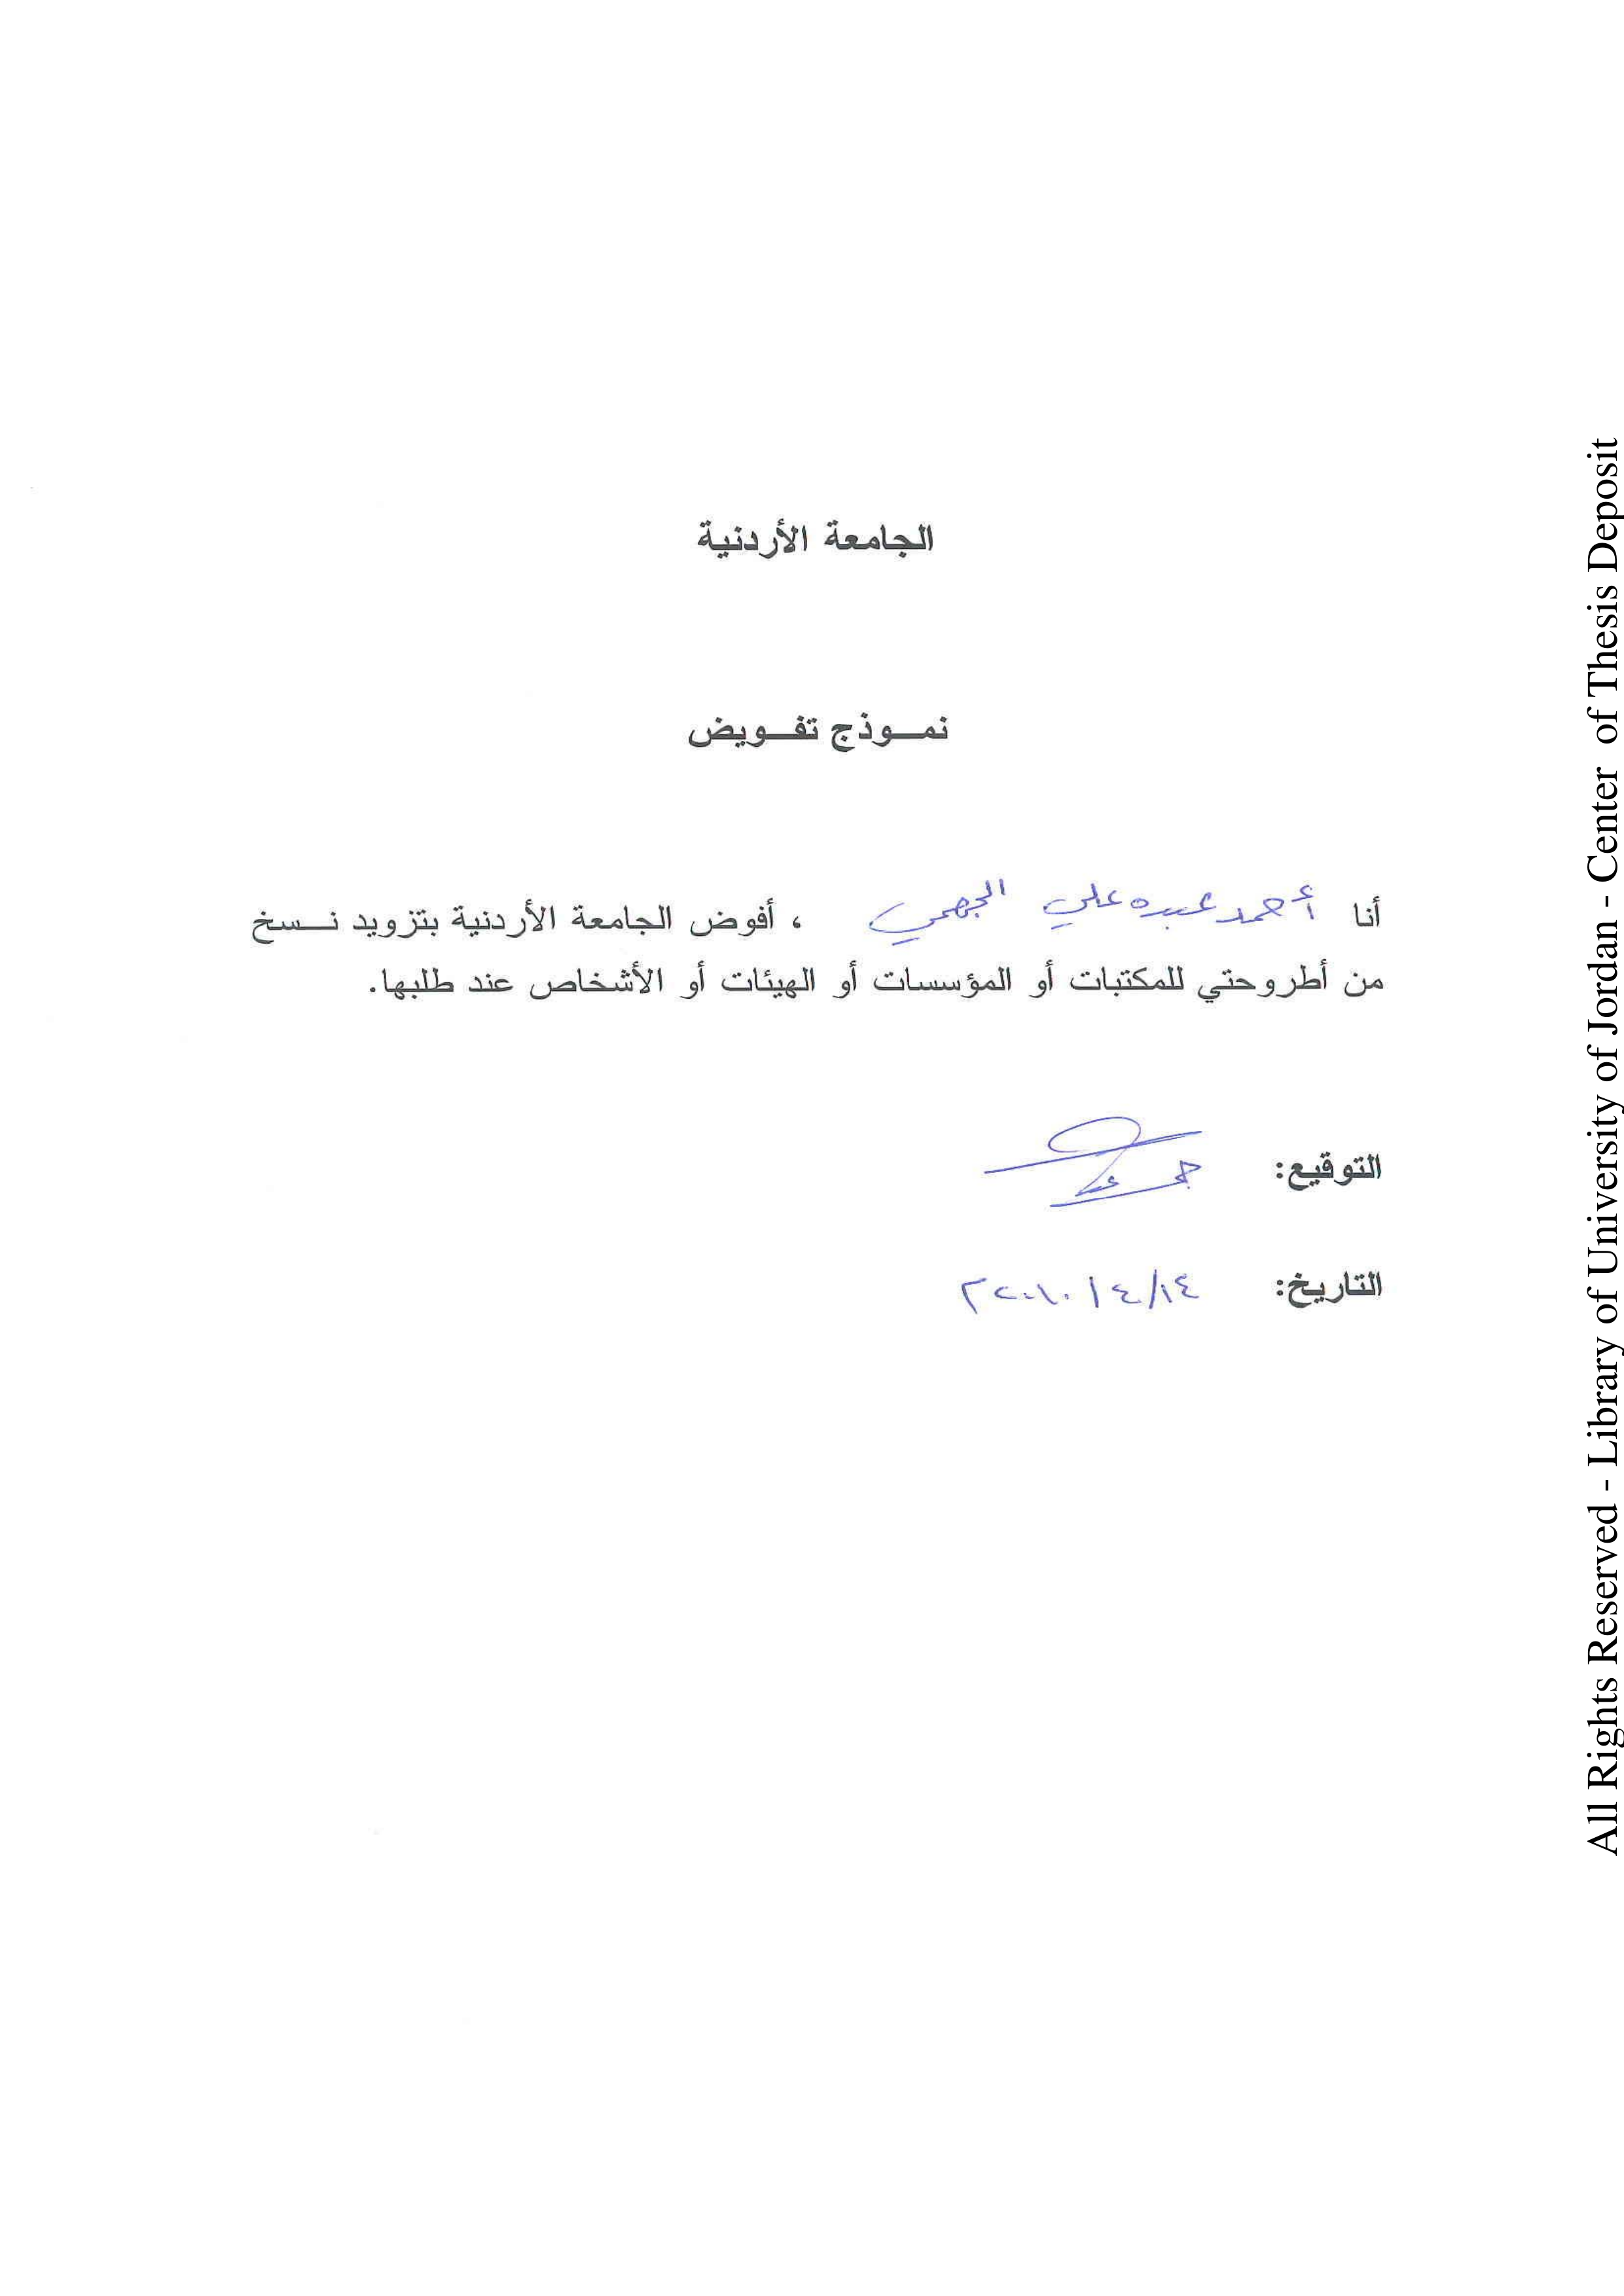 الجامعة الأردنية
نمـوذج تفـويض
أنا أحمد عبده علي الجهمي ، أفوض الجامعة الأردنية بتزويد نـسخ
من أطروحتي للمكتبات أو المؤسسات أو الهيئات أو الأشخاص عند طلبها.
التوقيع:
التاريخ: ١٤/ ٤ / ٢٠١٠م
All Rights Reserved - Library of University of Jordan - Center of Thesis Deposit